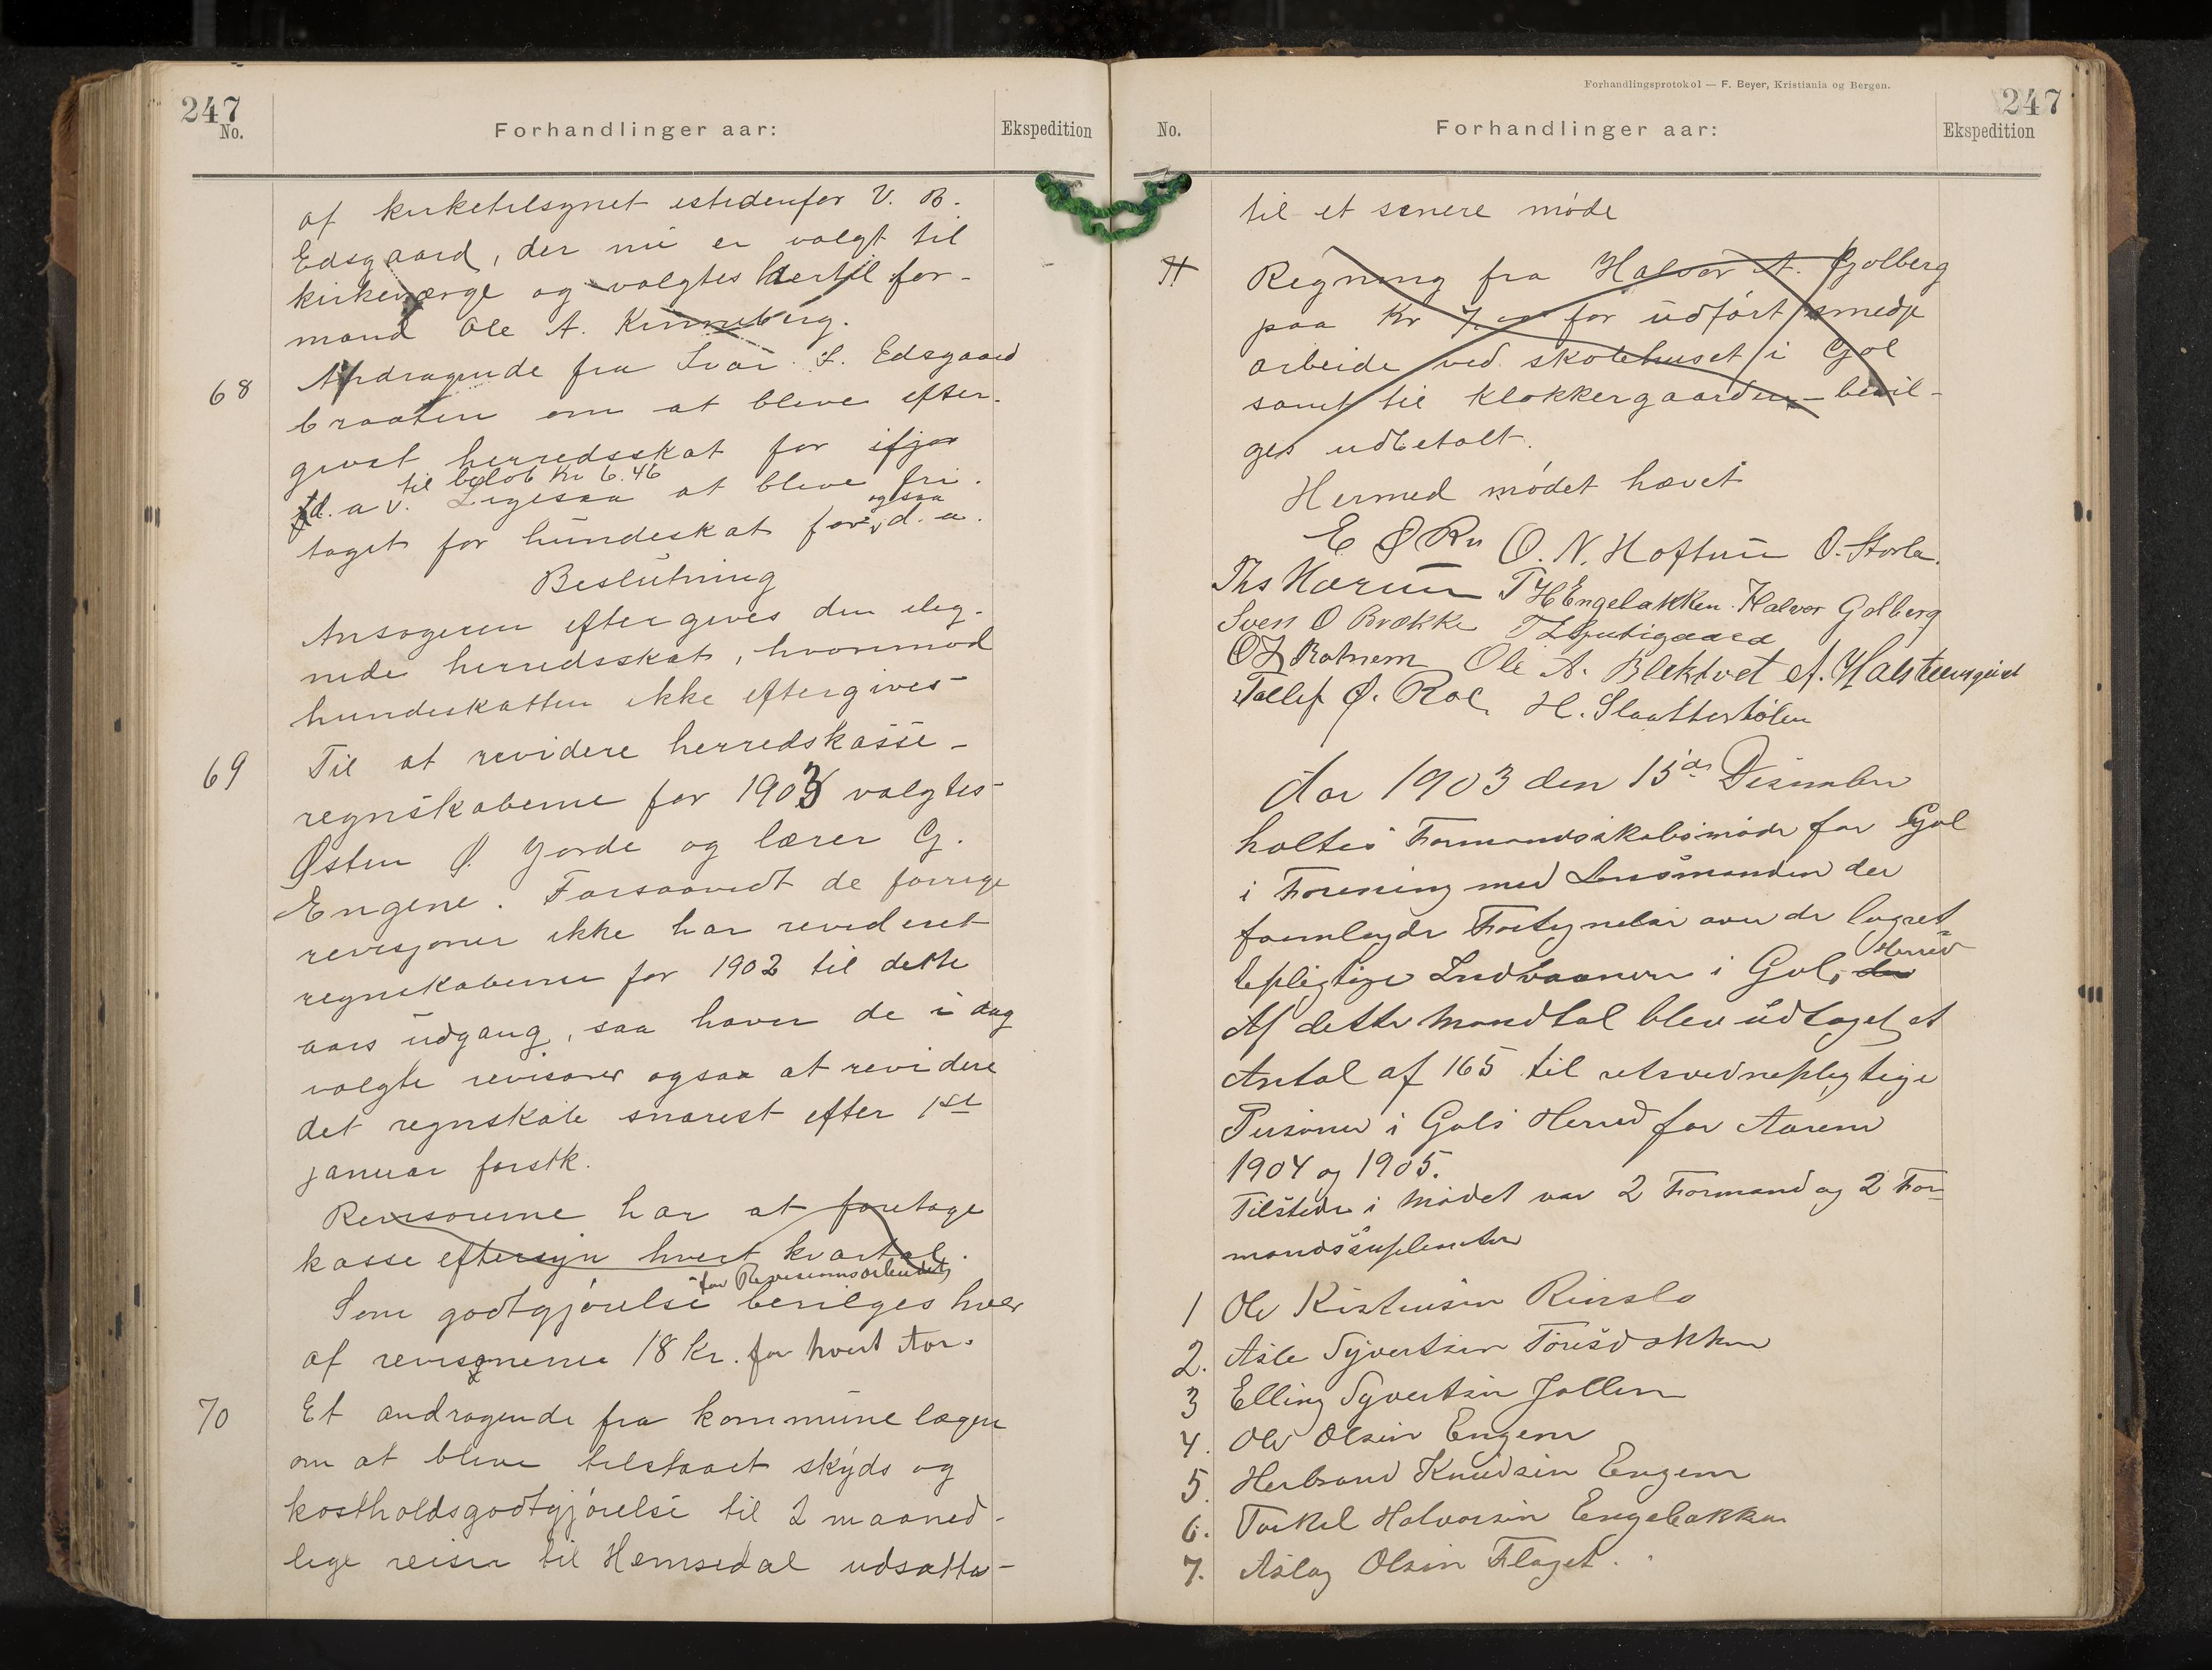 247
No.
Forhandlinger aar:
Ekspedition
af kirketilsynet istedenfor V. B.
Edsgaard, der nu er valgt til
kirkeværge og valgtes hertil for-
mand Ole A. Kinneberg.
68
Andragende fra Ivar S. Edsgaard
braaten om at bleve efter-
givet herredsskat for ifjor
til beløb Kr 6.46
d. a v. Ligesaa at bleve fri.
ogsaa
taget for hundeskat for d. a.
Beslutning
Ansøgeren eftergives den ileg-
nede herredsskat, hvorimod
hundeskatten ikke eftergives
69
Til at revidere herredskasse-
regnskaberne for 1903 valgtes
Østen Ø. Gjorde og lærer G.
Engene. Forsaavidt de forrige
revisjoner ikke har revideret
regnskaberne for 1902 til dette
aars udgang, saa haver de i dag
valgte revisorer ogsaa at revidere
det regnskab snarest efter 1ste
januar førstk.
Revisorerne har at foretage
kasse eftersyn hvert kvartal.
for Revisionsarbeidet
Som godtgjørelse bevilges hver
af revisorerne 18 Kr. for hvert Aar.
70
Et andragende fra kommunelægen
om at bleve tilstaaet skyds og
kostholdsgodtgjørelse til 2 maaned-
lige reiser til Hemsedal udsattes
Forhandlingsprotokol — F. Beyer, Kristiania og Bergen.
247
No.
Forhandlinger aar:
Ekspedition
til et senere møde
71
Regning fra Halvor A. Golberg
paa Kr 7. for udført smedje
arbeide ved skolehuset i Gol
samt til Klokkergaarden – bevil-
ges udbetalt.
Hermed mødet hævet
E O Ru O. N. Hoftun O. Storla.
Ths Hærum T H Engebakken. Halvor Golberg
Sven O Brække T L Gutigaard
O Rotnem Ole A. Blektvet A. Halsteensgaard
Tollef Ø. Roe. H. Slaattestølen
Aar 1903 den 15de Desember
holtes Formandsskabsmøde for Gol
i Forening med Lensmanden der
foremlagde Fortegnelse over de lagret-
Herred
tepligtige Indvaanere i Gols
Af dette Mandtal blev udtaget et
Antal af 165 til retsvidnepligtige
Personer i Gols Herred for Aarene
1904 og 1905.
Tilstede i Mødet var 2 Formænd og 2 For-
mandssuplenter
1 Ole Kristensen
2. Asle Syvertsen
3 Elling Syvertsen
4. Ole Olsen Engene
5. Herbrand Knudsen Engene
6. Torkel Halvorsen Engebakken
7. Aslag Olsen Flaget.